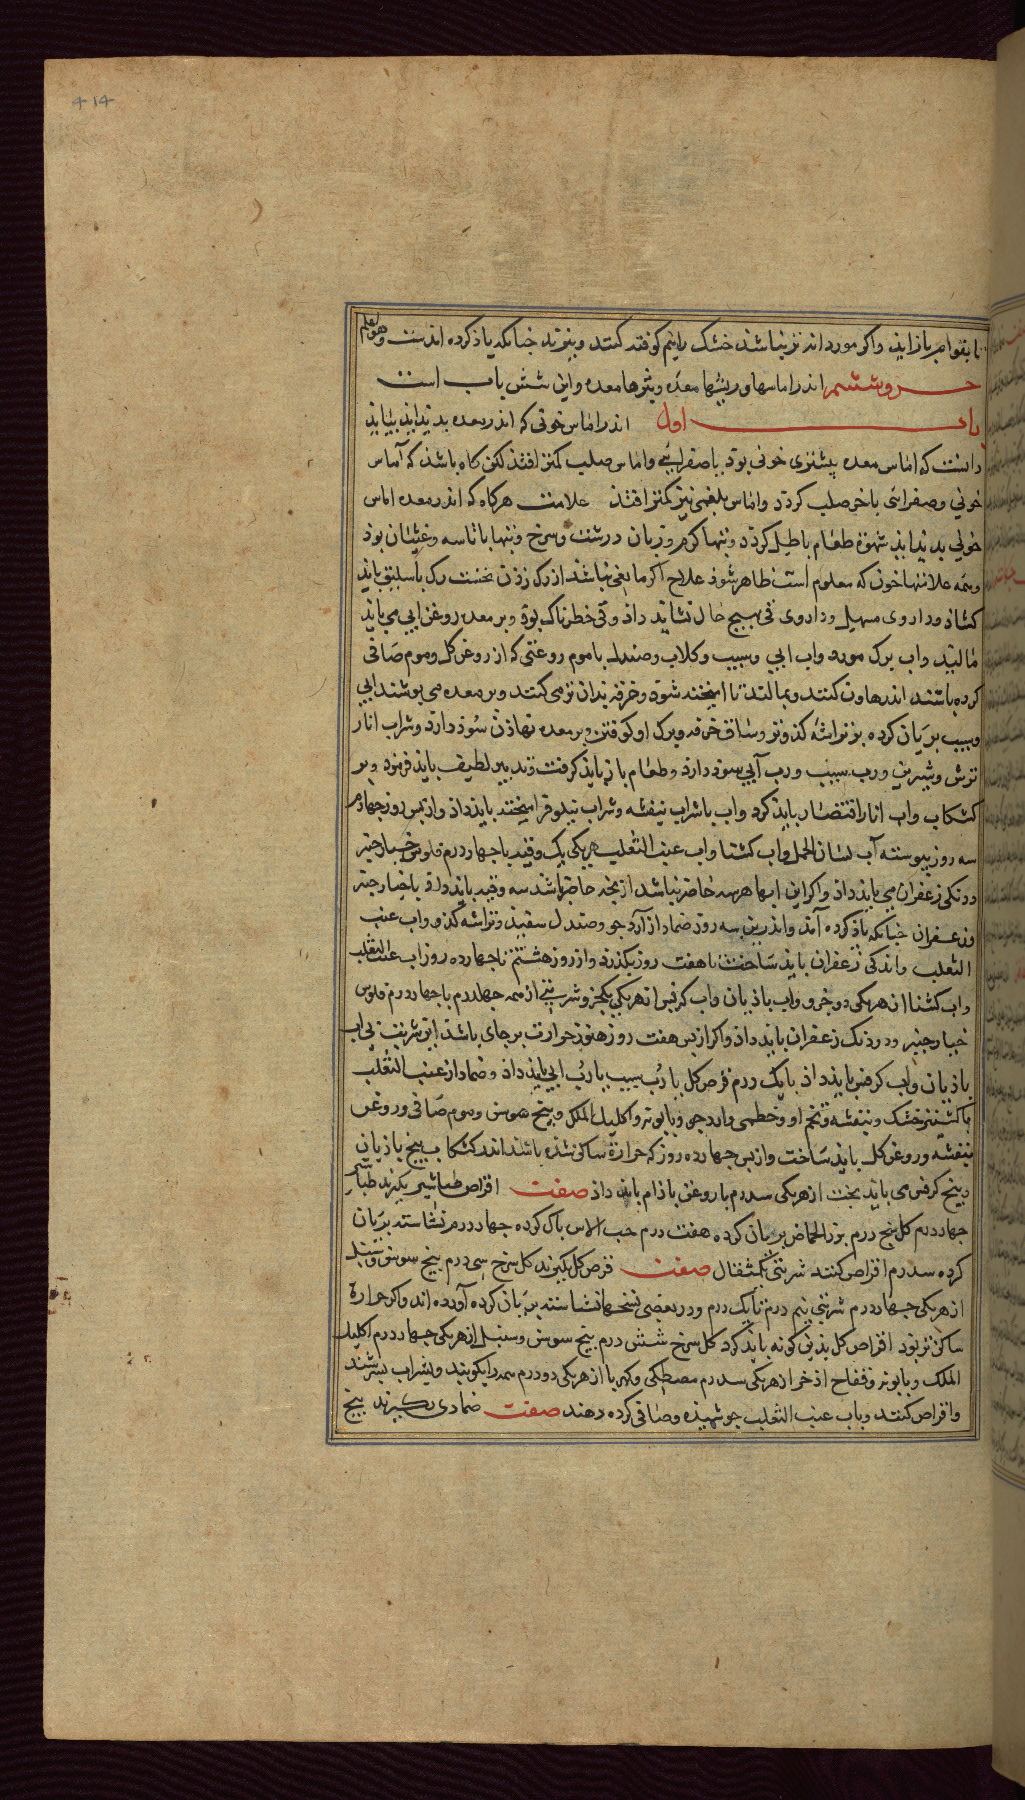 414
تا بقوام باز آید و اکر مورد اندر تر نباشد خشک را نیم کوفته کنند و بپزند چنانکه یاذ کرده اند
جزو ششم اندر اماسها و ریشها معده و بثرها معده و این شش باب است
باب اول اندر اماس خونی که اندر معده بدید آید بباید
دانست که اماس معده بیشتری خونی بود یا صفرایی و اماس صلب کمتر افتد لکن کاه باشد که آماس
خونی و صفرایی باخر صلب کردد و اماس بلغمی نیز کمتر افتد علامت هرکاه که اندر معده اماس
خونی بدید آید شهوة طعام باطل کردد و تبها کرم و زبان درشت و سرخ و تبها با تاسه و غثیان بوذ
و همه علامتها خون که معلوم است ظاهر شوذ علاج اکر مانعی نباشد از رک زدن نخست رک باسلیق باید
کشاذ و داروی مسهل و داروی قی بهیچ حال نشاید داذ و قی خطرناک بوذ و بر معده روغن ابی می باید
مالید و اب برک مورد و اب ابی و سیب و کلاب و صندل با موم روغنی که از روغن کل و موم صافی
کرده باشند اندر هاون کنند و بمالند تا امیخته شوذ و خرقه بدان تر می کنند و بر معده می پوشند ابی
و سیب بریان کرده و تراشه کذوتر و ساق خرفه و برک او کوفتن و بر معده نهاذن سوذ دارد و شراب انار
ترش و شیرین و رب سیب و رب آبی سوذ دارد و طعام باز باید کرفت و تدبیر لطیف باید فرمود و بر
کشکاب و اب انار اقتصار باید کرد و اب با شراب بنفشه و شراب نیلوفر امیخته باید داذ و از پس روز چهارم
سه روز پیوسته آب لسان الحمل و اب کشنا و اب عنب الثعلب هریکی یک وقیه با چهار درم فلوس خیارچنبر
و دنکی زعفران می باید داذ و اکر این ابها هرسه حاضر نباشد ازنچه حاضر باشد سه وقیه باید داذ با خیارچنبر
و زعفران چنانکه یاذ کرده آمد و اندرین سه روز ضماد از آرد جو و صندل سفید و تراشه کذو و اب عنب
الثعلب و اندکی زعفران باید ساخت تا هفت روز بکذرد و از روز هشتم تا چهارده روز اب عنب الثعلب
و اب کشنا از هریکی دو جزو و اب باذیان و اب کرفس از هریکی یکجزو شربتی از همه چهل درم با چهار درم فلوس
خیارچنبر و دو دنک زعفران باید داذ و اکر از پس هفت روز هنوز حرارت برجای باشد این شربت بی اب
باذیان و اب کرفس باید داذ با یک درم قرص کل با رب سیب یا رب ابی باید داذ و ضماد از عنب الثعلب
با کشنیز خشک و بنفشه و تخم او و خطمی و ارد جو و بابونه و اکلیل الملک و بیخ سوسن و موم صافی و روغن
بنفشه و روغن کل باید ساخت و از پس چهارده روز که حرارة ساکن شده باشد اندر کشکاب بیخ باذیان
و بیخ کرفس می باید پخت از هریکی سه درم با روغن باذام باید داذ صفت اقراص طباشیر بکیرند طباشیر
چهار درم کل پنج درم بزرالحماض بریان کرده هفت درم حب الاس پاک کرده چهار درم نشاسته بریان
کرده سه درم اقراص کنند شربتی یکمثقال صفت قرص کل بکیرند کل سرخ سی درم بیخ سوسن و سنبل
از هریکی چهار درم شربتی نیم درم تا یک درم و در بعضی نسخها نشاسته بریان کرده آورده اند و اکر حرارة
ساکن تر بوذ اقراص کل بذین کونه باید کرد کل سرخ شش درم بیخ سوسن و سنبل از هریکی چهار درم اکلیل
الملک و بابونه و فقاح اذخر از هریکی سه درم مصطکی و کهربا از هریکی دو درم همه را بکوبند و بشراب بسرشند
و اقراص کنند و باب عنب الثعلب جوشیذه و صافی کرده دهند صفت ضمادی بکیرند بیخ